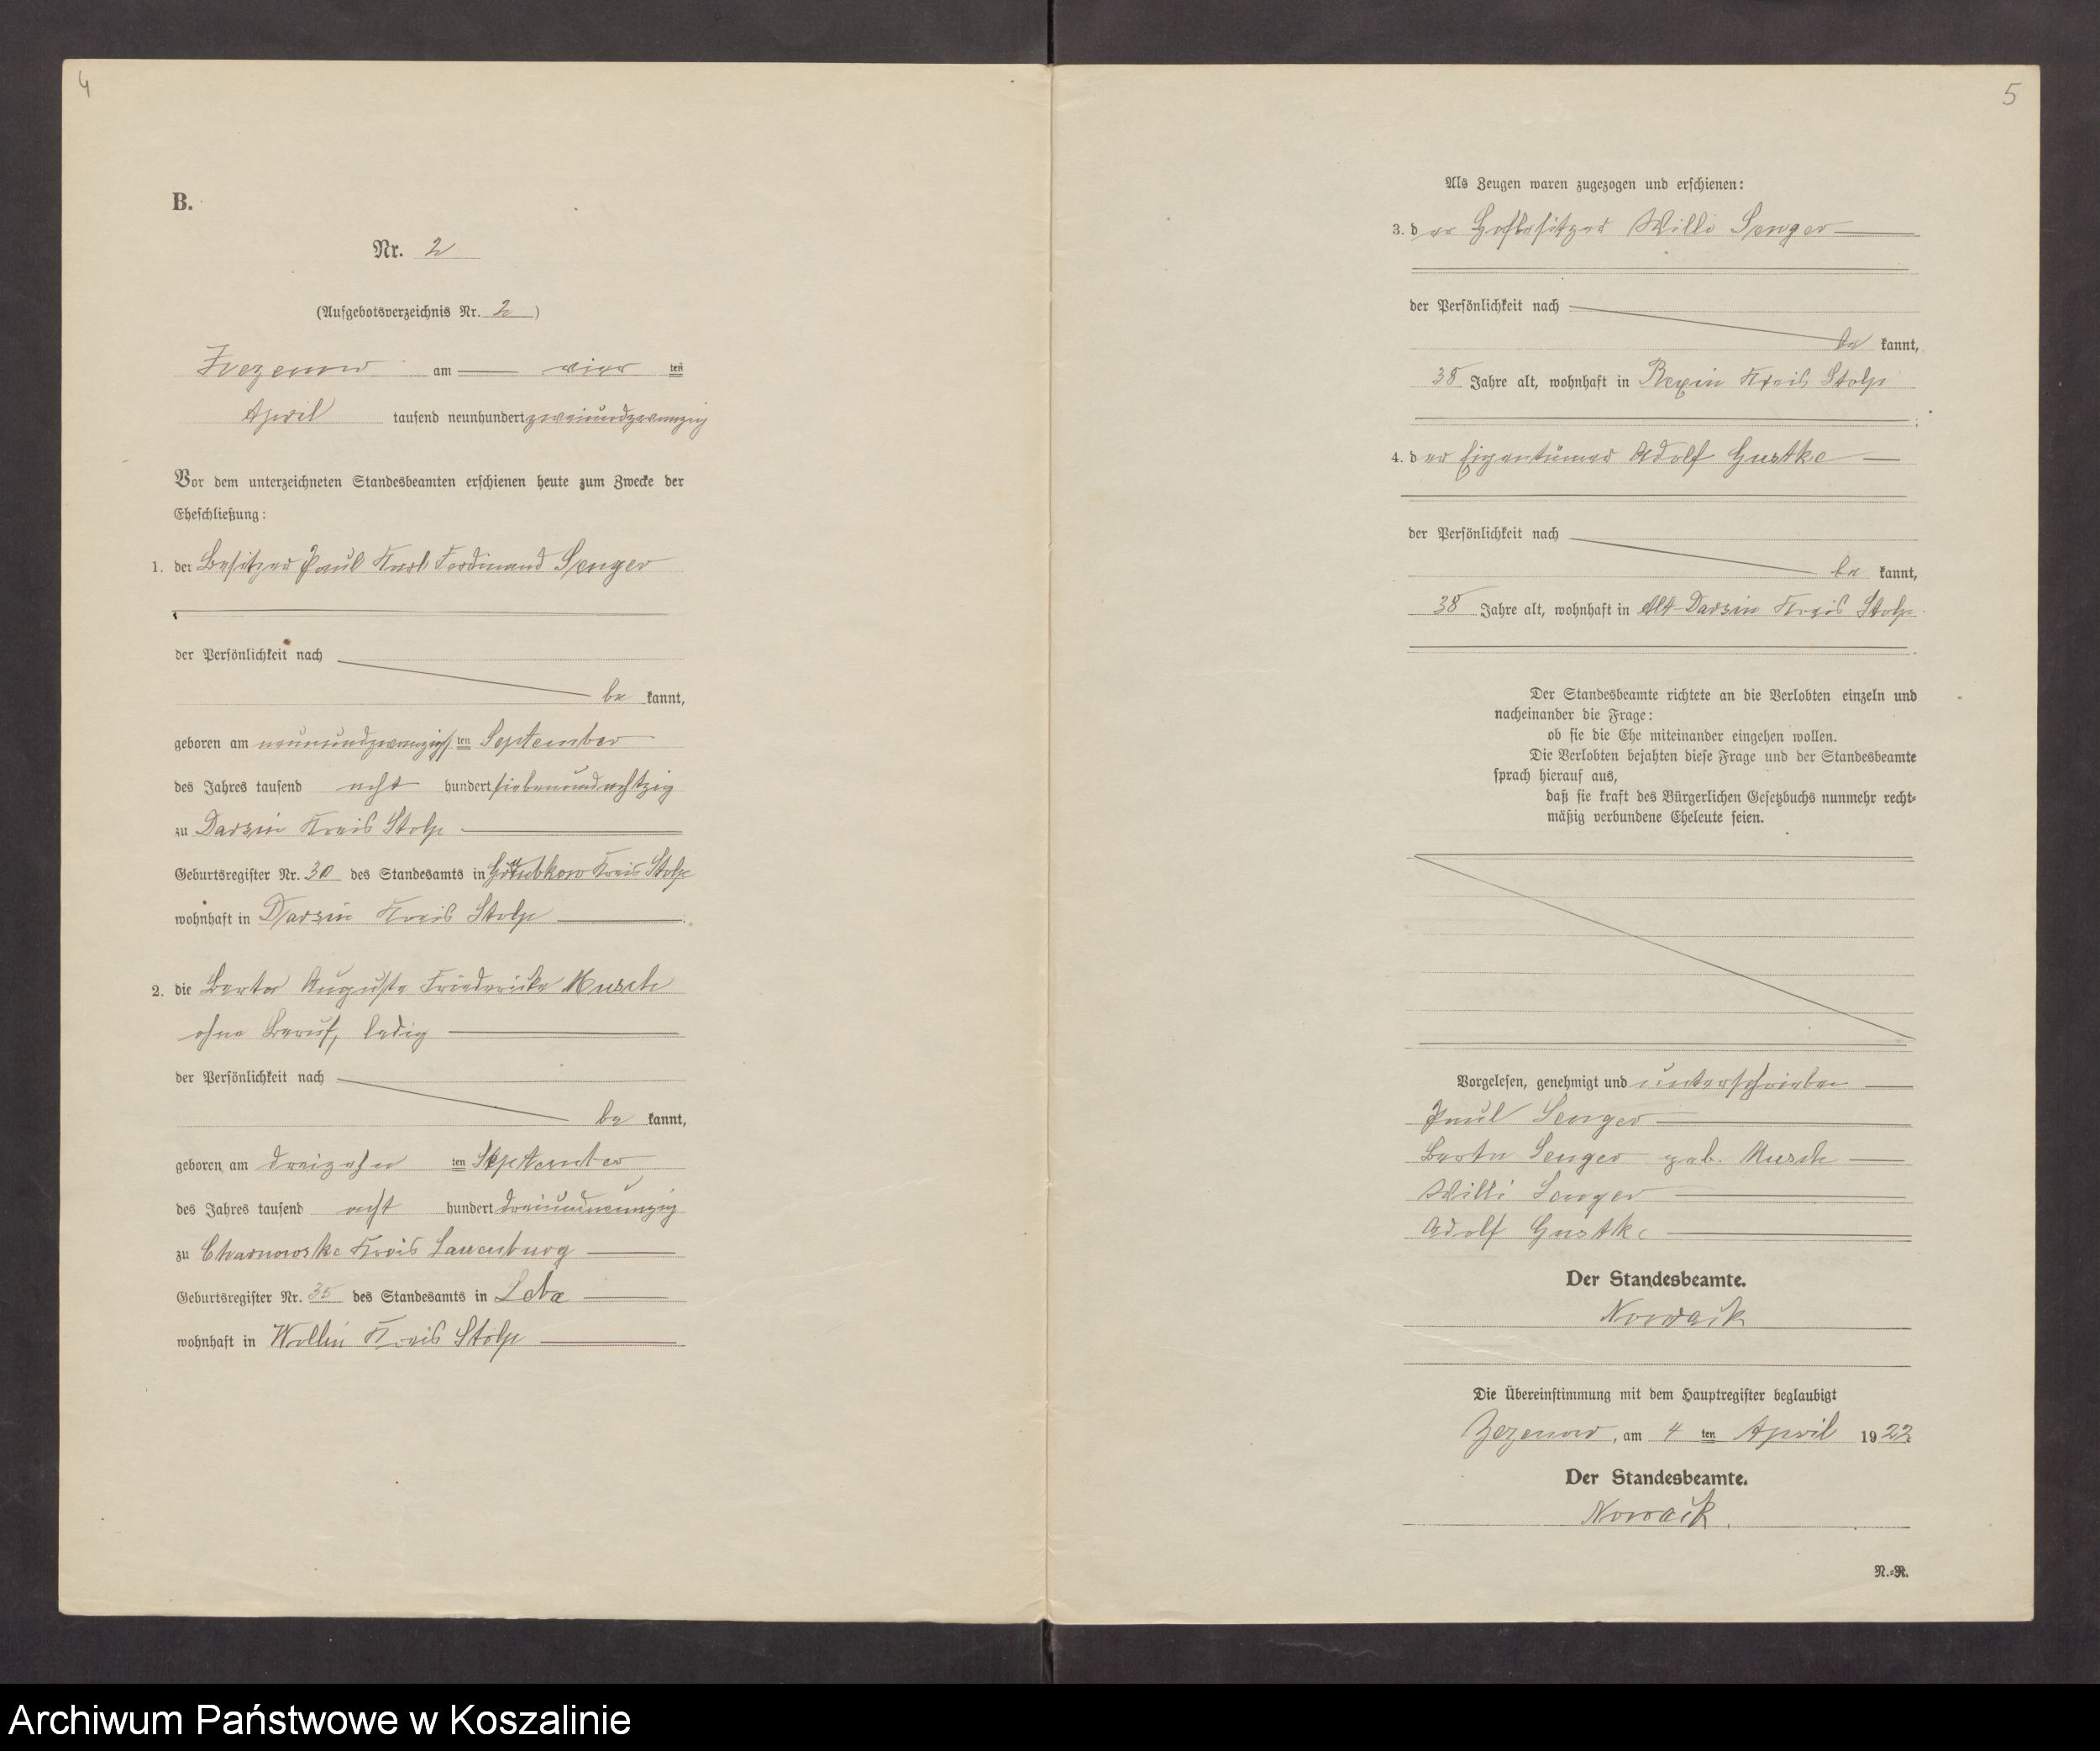 4
B.
Nr. 2
(Aufgebotsverzeichnis Nr. 2)
Zezenow am vier ten
April tausend neunhundert zweiundzwanzig
Vor dem unterzeichneten Standesbeamten erschienen heute zum Zwecke der
Eheschließung:
1. der Besitzer Paul Karl Ferdinand Senger
der Persönlichkeit nach
be kannt,
geboren am neunundzwanzigs ten September
des Jahres tausend acht hundert siebenundachtzig
zu Darsin Kreis Stolp
Geburtsregister Nr. 30 des Standesamts in Grumbkow Kreis Stolp
wohnhaft in Darsin Kreis Stolp
2. die Berta Auguste Friederike Musch
ohne Beruf, ledig
der Persönlichkeit nach
be kannt,
geboren am dreizehn ten September
des Jahres tausend acht hundert dreiundneunzig
zu Charnowske Kreis Lauenburg
Geburtsregister Nr. 35 des Standesamts in Leba
wohnhaft in Wollin Kreis Stolp
5
Als Zeugen waren zugezogen und erschienen:
3. der Hofbesitzer Willi Senger
der Persönlichkeit nach
be kannt,
38 Jahre alt, wohnhaft in Rexin Kreis Stolp
;
4. der Eigentümer Adolf Gustke
der Persönlichkeit nach
be kannt,
38 Jahre alt, wohnhaft in Alt Darsin Kreis Stolp
.
Der Standesbeamte richtete an die Verlobten einzeln und
nacheinander die Frage:
ob sie die Ehe miteinander eingehen wollen.
Die Verlobten bejahten diese Frage und der Standesbeamte
sprach hierauf aus,
daß sie kraft des Bürgerlichen Gesetzbuchs nunmehr recht-
mäßig verbundene Eheleute seien.
Vorgelesen, genehmigt und unterschrieben
Paul Senger
Berta Senger geb. Musch
Willi Senger
Adolf Gustke
Der Standesbeamte.
Nowack
Die Übereinstimmung mit dem Hauptregister beglaubigt
Zezenow, am 4 ten April 1922
Der Standesbeamte.
Nowack.
N.-R.
Archiwum Państwowe w Koszalinie